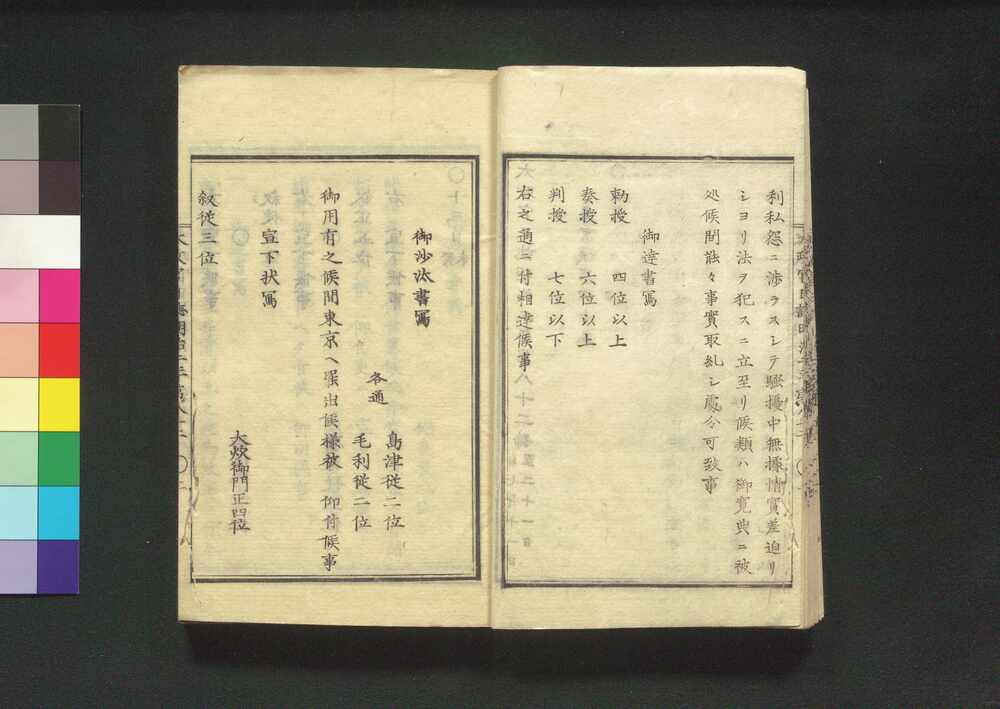 利私怨ニ渉ラスシテ騒擾中無據情實差迫リ
シヨリ法ヲ犯スニ立至リ候類ハ御寛典ニ被
処候間能々事實取糺シ處分可致事
御達書寫
勅授 四位以上
奏授 六位以上
判授 七位以下
右之通ニ付相達候事
御沙汰書寫
各通
島津従二位
毛利従二位
御用有之候間東京ヘ罷出候様被 仰付候事
宣下状寫
大炊御門正四位
叙従三位